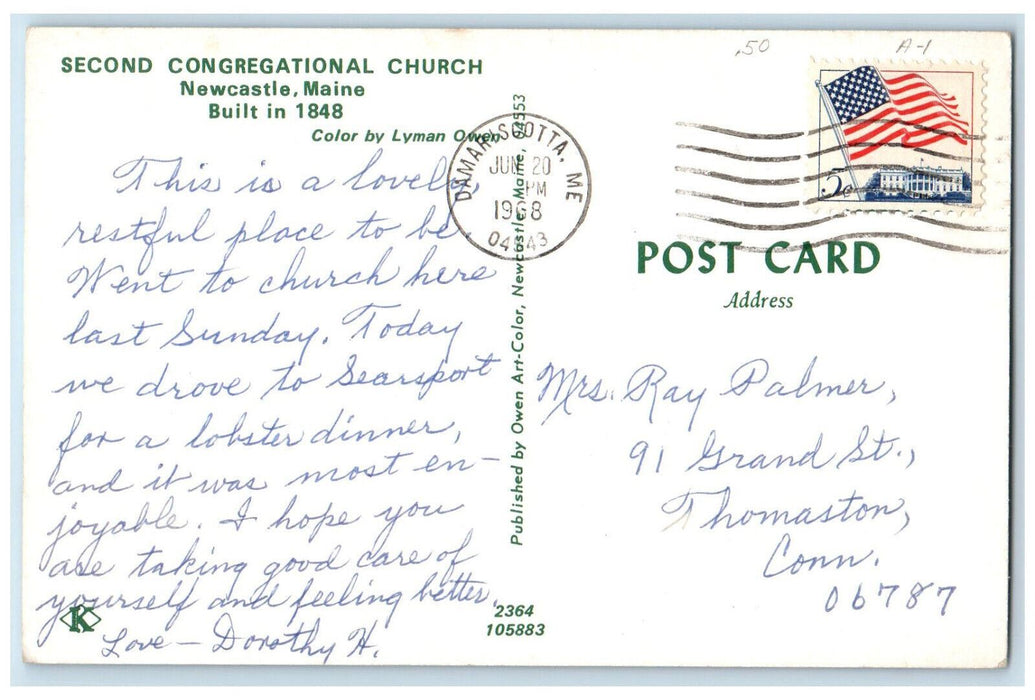 .50
A-1
SECOND CONGREGATIONAL CHURCH
Newcastle, Maine
Built in 1848
Color by Lyman Owen
DAMARISCOTTA, ME
JUN 20
PM
1968
04543
5c
This is a lovely,
restful place to be.
Went to church here
last Sunday. Today
we drove to Searsport
for a lobster dinner,
and it was most en-
joyable. I hope you
are taking good care of
yourself and feeling better.
Love - Dorothy H.
K
2364
105883
Published by Owen Art-Color, Newcastle, Maine, 04553
POST CARD
Address
Mrs. Ray Palmer,
91 Grand St.,
Thomaston,
Conn.
06787